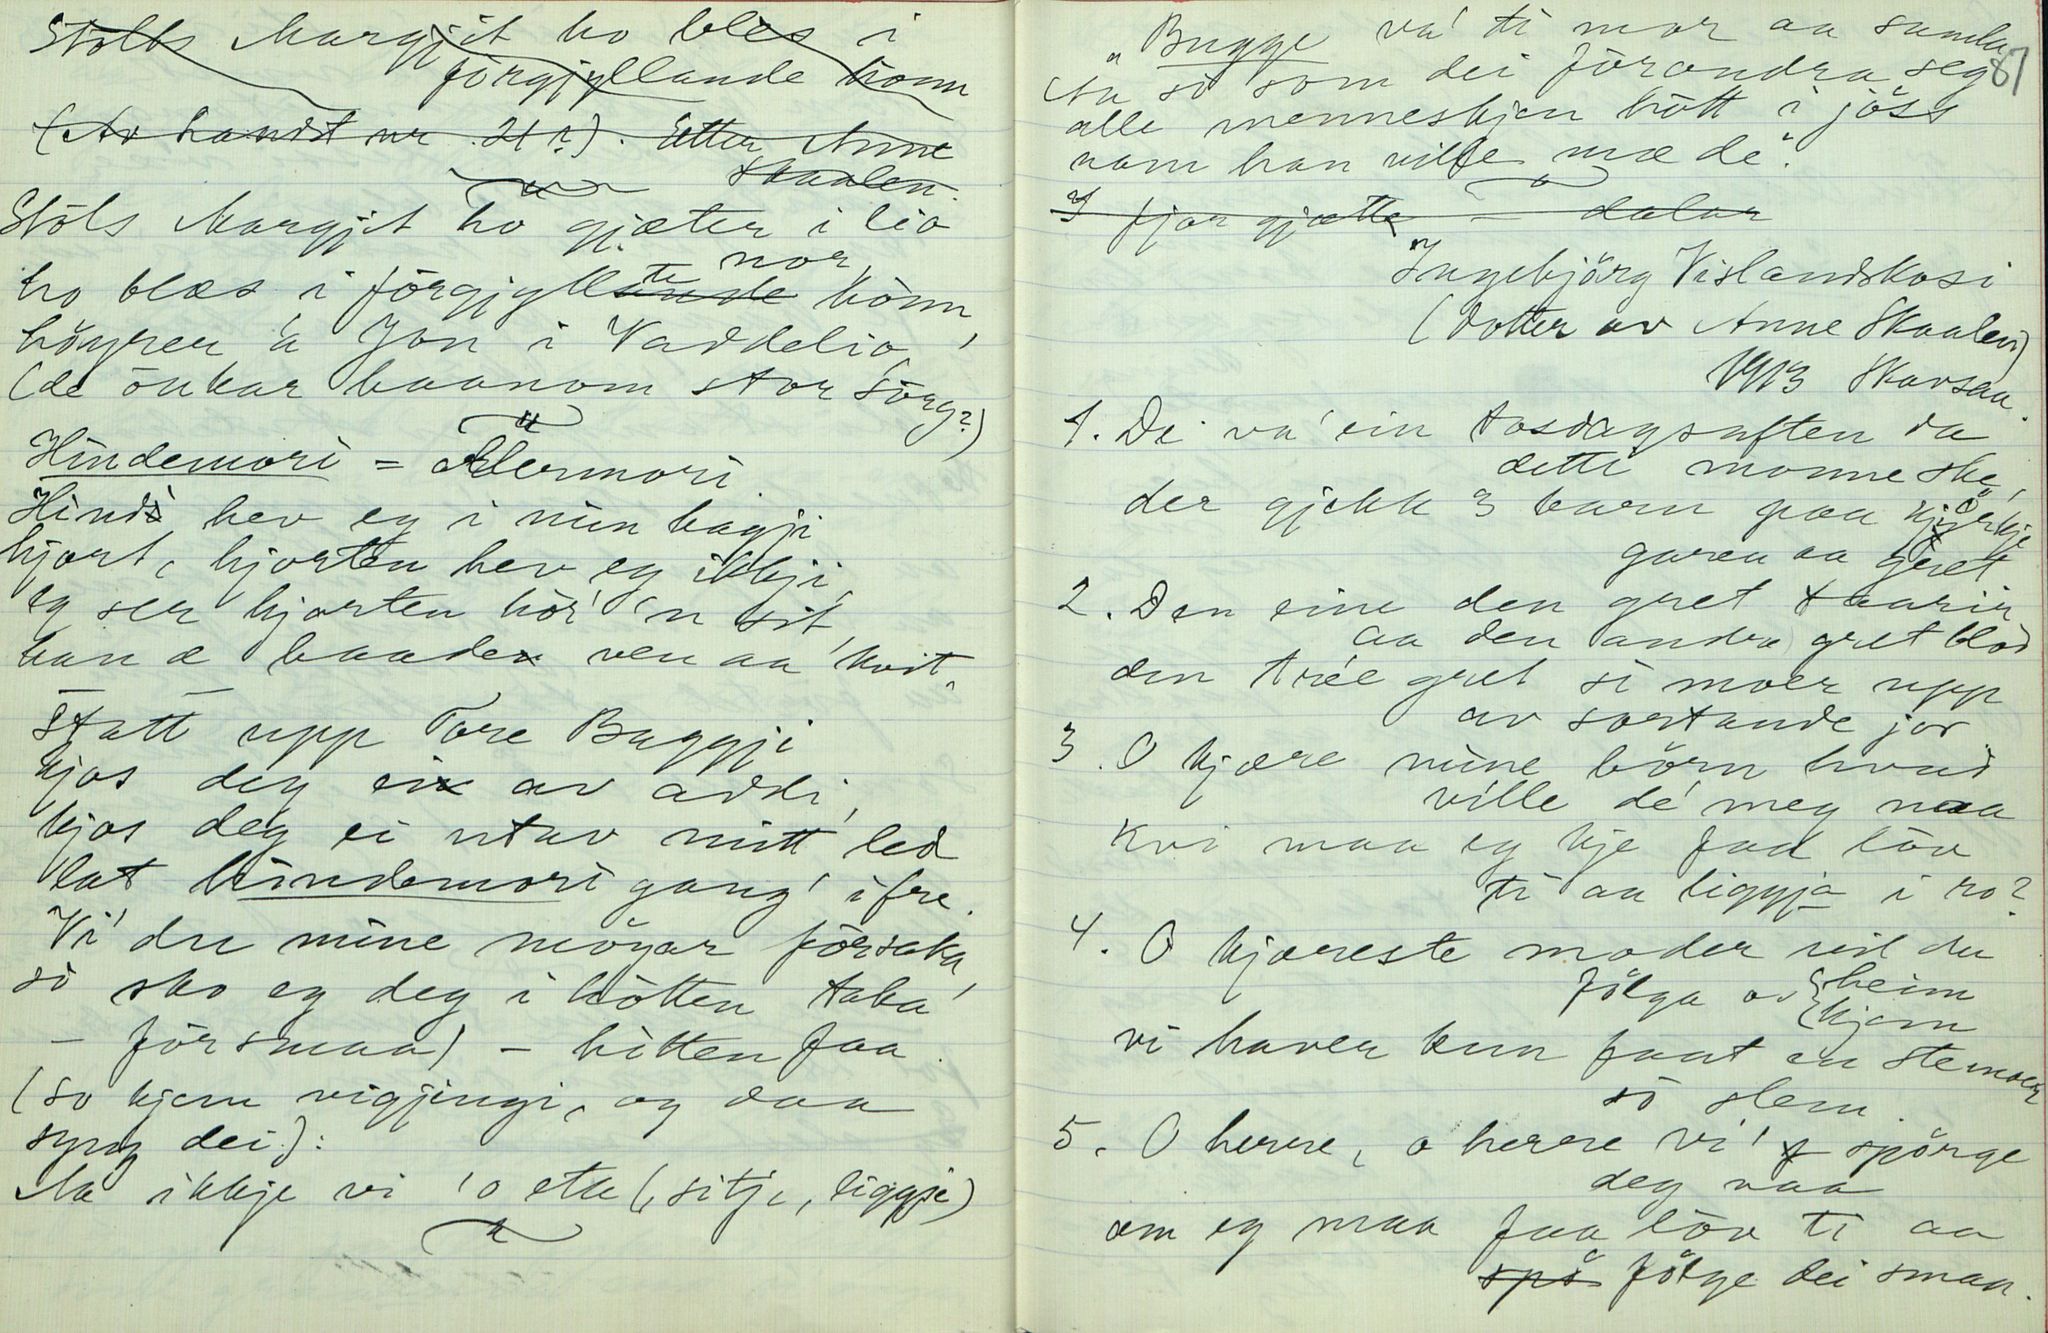 Stolts Margjit ho bles i
förgjyllande honn
(Av handst nr 21?). Etter Anne
Skaalen.
Stöls Margjit ho gjæter i lio
nor
ho blæs i förgjyllande te hönn,
höyrer 'a Jon i Vaddelio,
(de önkar haanom stor sörg?)
Hindemori = Ellermori.
Hindi hev eg i min hagji
hjort, hjorten hev eg ikkji,
eg ser hjorten hör' 'n sit,
han æ baade ven aa kvit.
Statt upp Tore Buggji
kjos deg ei av addi,
kjos deg ei utav mitt led
lat hindemori gang' ifre.
Vi' du mine möyar försaka,
så sko eg deg i hötten taka
– försmaa) – hötten faa.
(so kjem vigjingi, og daa
syng dei):
Aa ikkje vi 'o eta (, sitje, liggje)
87
"Bugge va' ti mor aa samla
Aa so som dei förandra seg
alle menneskjen hött i jöss
nam han ville mæ de".
I fjor gjætte – dalar
Ingebjörg Vislandskosi
(dotter av Anne Skaalen)
1913 Skavsaa.
1. De va' ein tosdagsaften da
detti monne ske,
der gjekk 3 barn paa kjörkje
garen aa gret
2. Den eine den gret taarir
aa den andra gret blod
den trée gret si moer upp
av sortande jor
3. O kjære mine börn hvad
ville de' meg naa
Kvi maa eg kje faa löv
ti aa liggja i ro?
4. O kjæreste moder vil du
fölga os heim
hjem
vi haver kun faat en stemoer
så slem.
5. O herre, o herre vi' spörge
deg naa
om eg maa faa löv ti aa
spö fölge dei smaa.